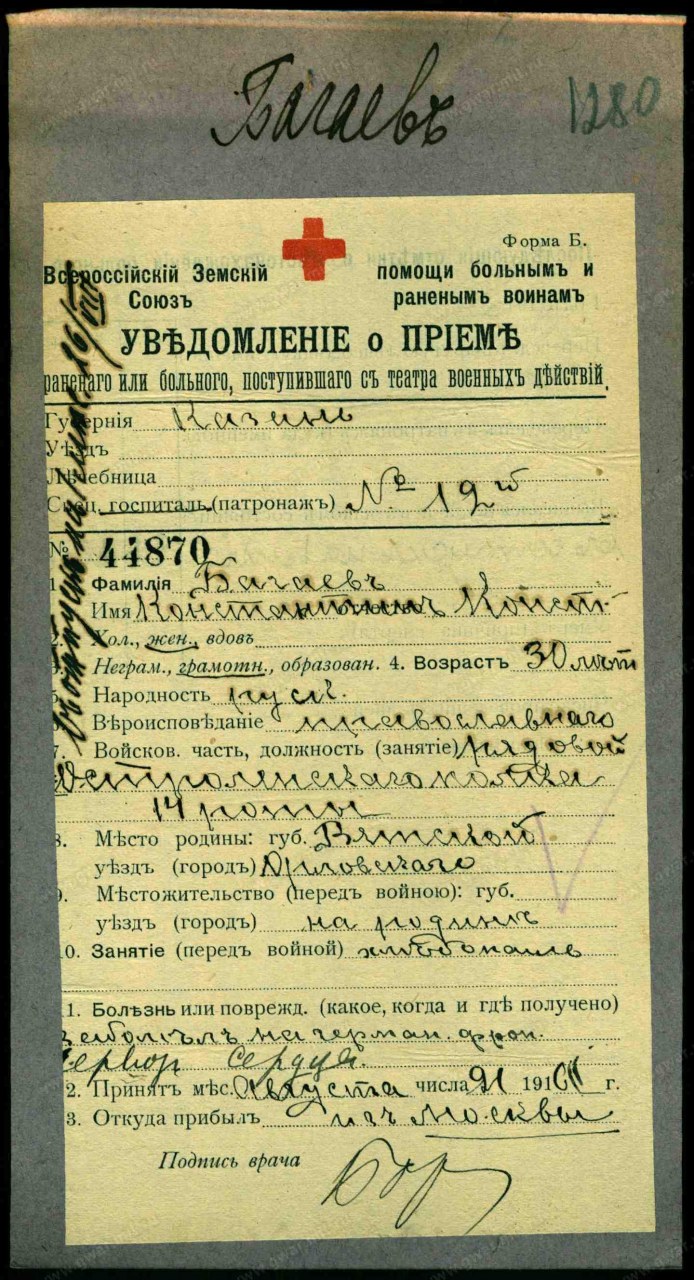 Багаевъ
1280
Форма Б.
Всероссійскій Земскій Союзъ
помощи больнымъ и раненымъ воинамъ
УВѢДОМЛЕНІЕ о ПРІЕМѢ
раненаго или больного, поступившаго съ театра военныхъ дѣйствій.
Губернія Казань
Уѣздъ
Лѣчебница
Спец. госпиталь (патронажъ) № 19й
№ 44870
1. Фамилія Багаевъ
Имя Константинъ Конст.
2. Хол., жен., вдовъ
3. Неграм., грамотн., образован. 4. Возрастъ 30 лѣт
5. Народность русс.
6. Вѣроисповѣданіе православнаго
7. Войсков. часть, должность (занятіе) рядовой
Остроленскаго полка
14 роты
8. Мѣсто родины: губ. Вятской
уѣздъ (городъ) Орловскаго
9. Мѣстожительство (передъ войною): губ.
уѣздъ (городъ) на родинѣ
10. Занятіе (передъ войной) хлѣбопашь
11. Болѣзнь или поврежд. (какое, когда и гдѣ получено)
заболѣлъ на герман. фрон.
сердца.
12. Принятъ мѣс. Августа числа 21 1916 г.
13. Откуда прибылъ изъ Москвы
Подпись врача